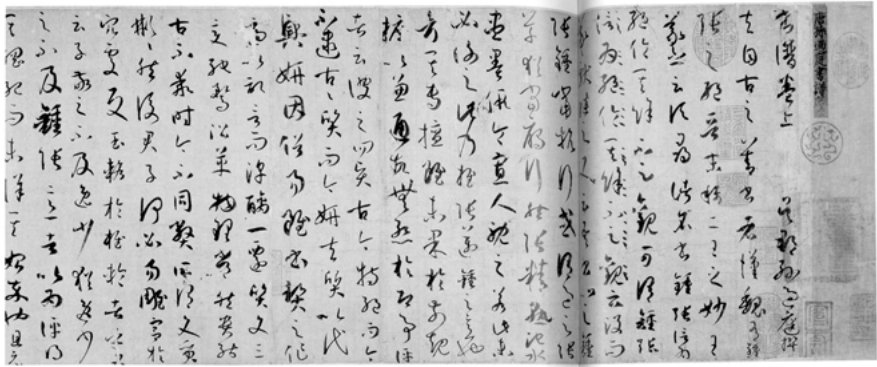 唐孫過庭書譜
書譜卷上 吳郡孫過庭撰
夫自古之善書者漢魏有鍾
張之絕晉末稱二王之妙王
羲之云頃尋諸名書鍾張信為
絕倫其餘不足觀可謂鍾張
云沒而
羲獻繼之又云吾書比之鍾
張鍾當抗行或謂過之張
草猶當雁行然張精熟池水
盡墨假令寡人耽之若此未
必謝之此乃推張邁鍾之意也
考其專擅雖未果於前規
摭以兼通故無慚於即事評
者云彼之四賢古今特絕而今
不逮古古質而今妍夫質以代
興妍因俗易雖書契之作
適以記言而淳醨一遷質文三
變馳騖沿革物理常然貴能
古不乖時今不同弊所謂文質
彬彬然後君子何必易雕宮於
穴處反玉輅於椎輪者乎又
云子敬之不及逸少猶逸少
之不及鍾張意者以為評得
其綱紀而未詳其始卒也且元